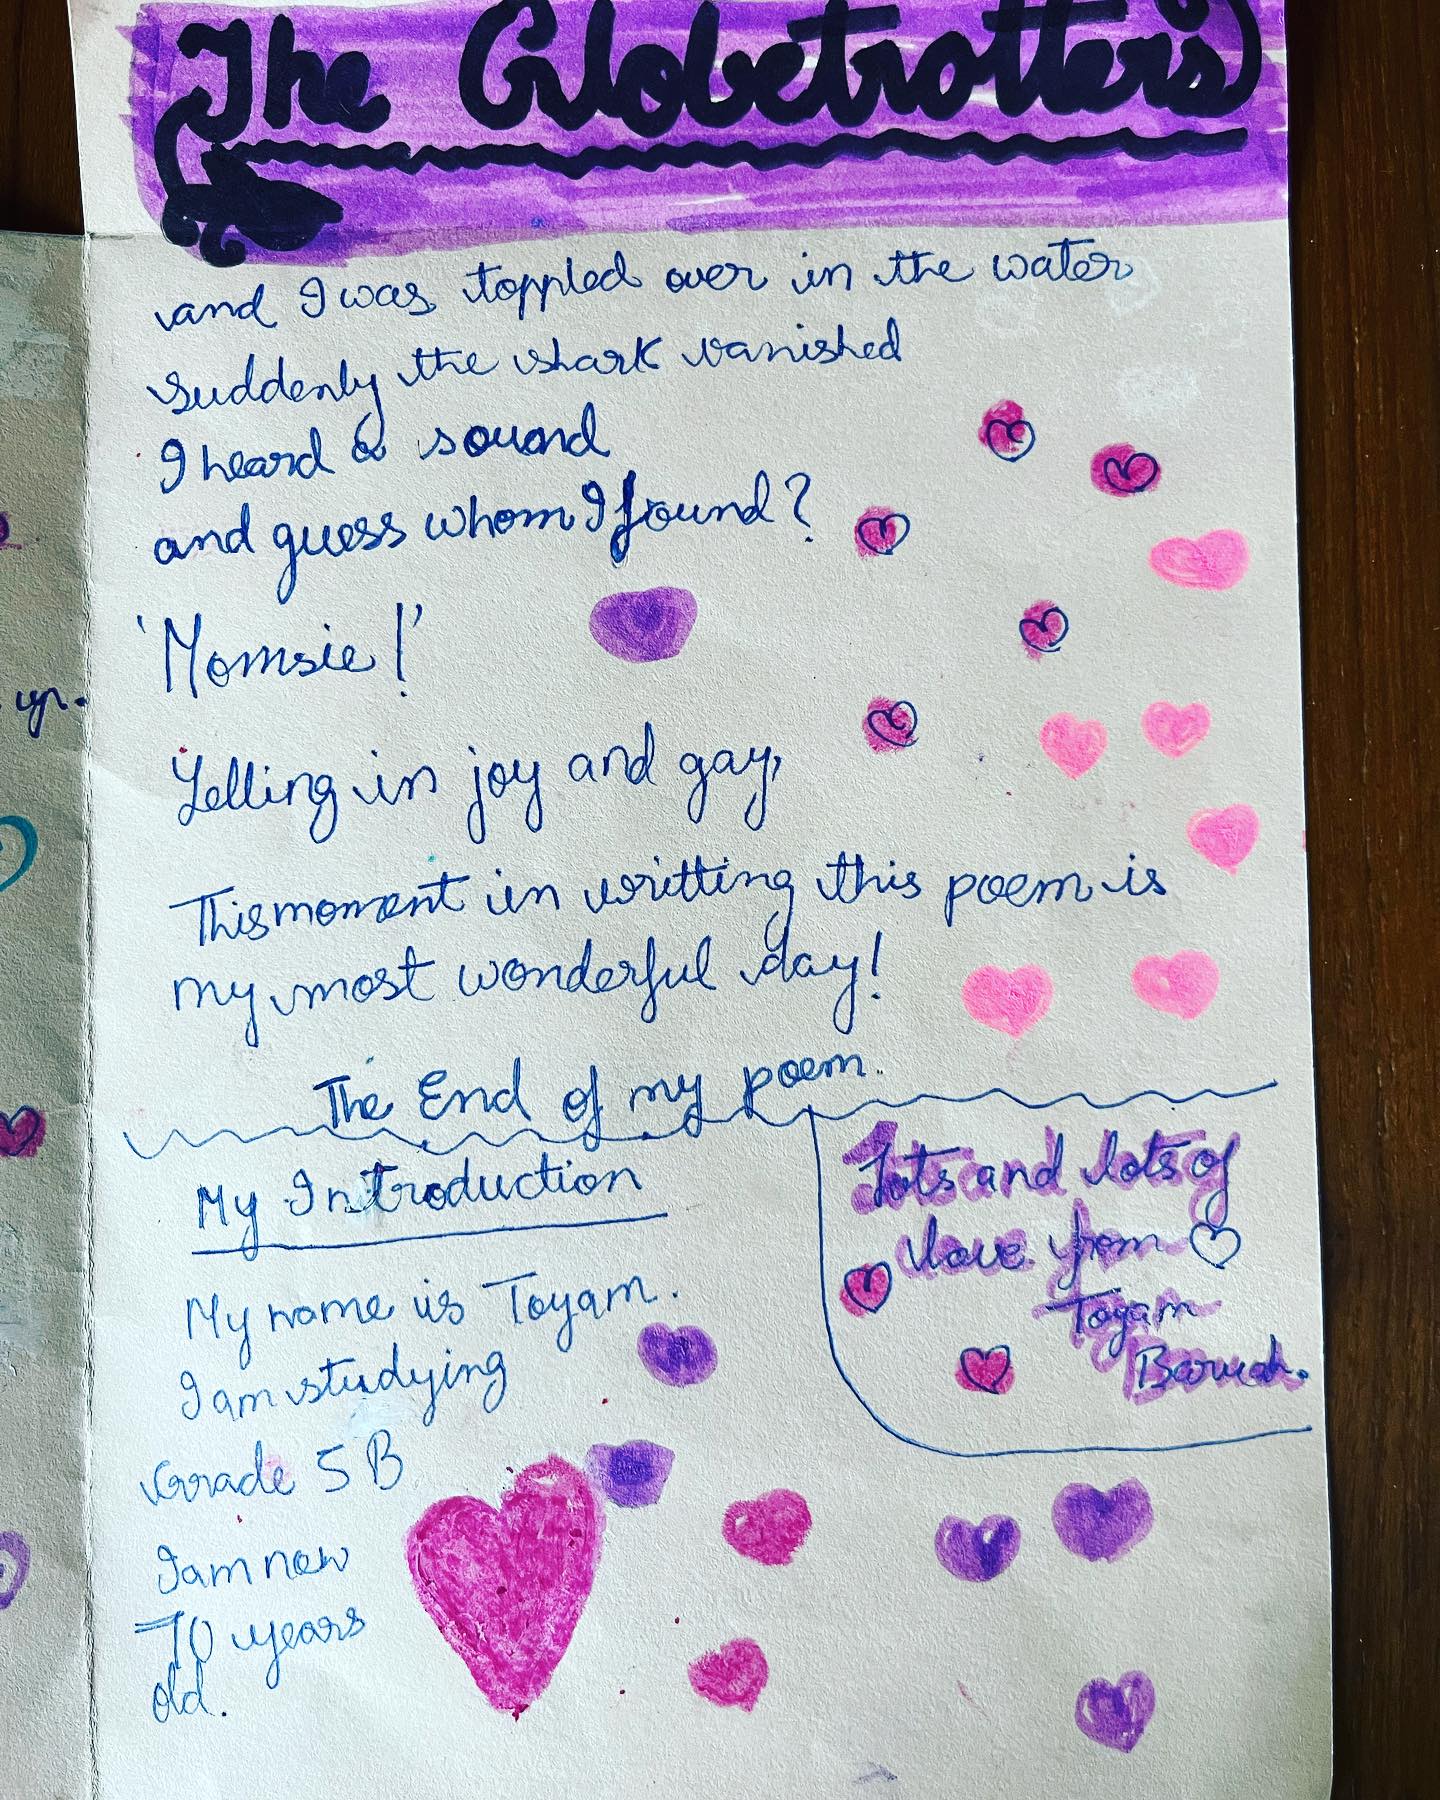 The Globetrotters
and I was toppled over in the water
suddenly the shark vanished
I heard a sound
and guess whom I found?
'Momsie!'
Yelling in joy and gay,
This moment in writting this poem is
my most wonderful day!
The End of my poem.
My Introduction
My name is Toyam.
I am studying
Grade 5 B
I am now
10 years
old.
Lots and lots of
love from
Toyam
Baruah.
up.